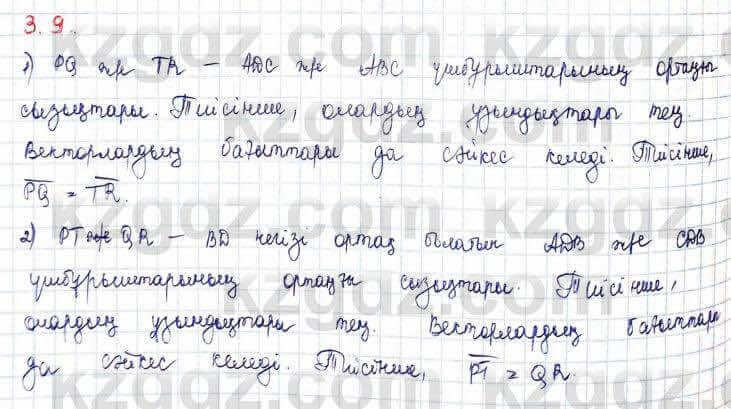 3.9.
1) PQ және TR – ADC және ABC үшбұрыштарының ортаңғы
сызықтары. Тиісінше, олардың ұзындықтары тең.
Векторлардың бағыттары да сәйкес келеді. Тиісінше,
PQ = TR.
2) PT және QR – BD негізі ортақ болатын ADB және CDB
үшбұрыштарының ортаңғы сызықтары. Тиісінше,
олардың ұзындықтары тең. Векторлардың бағыттары
да сәйкес келеді. Тиісінше, PT = QR.